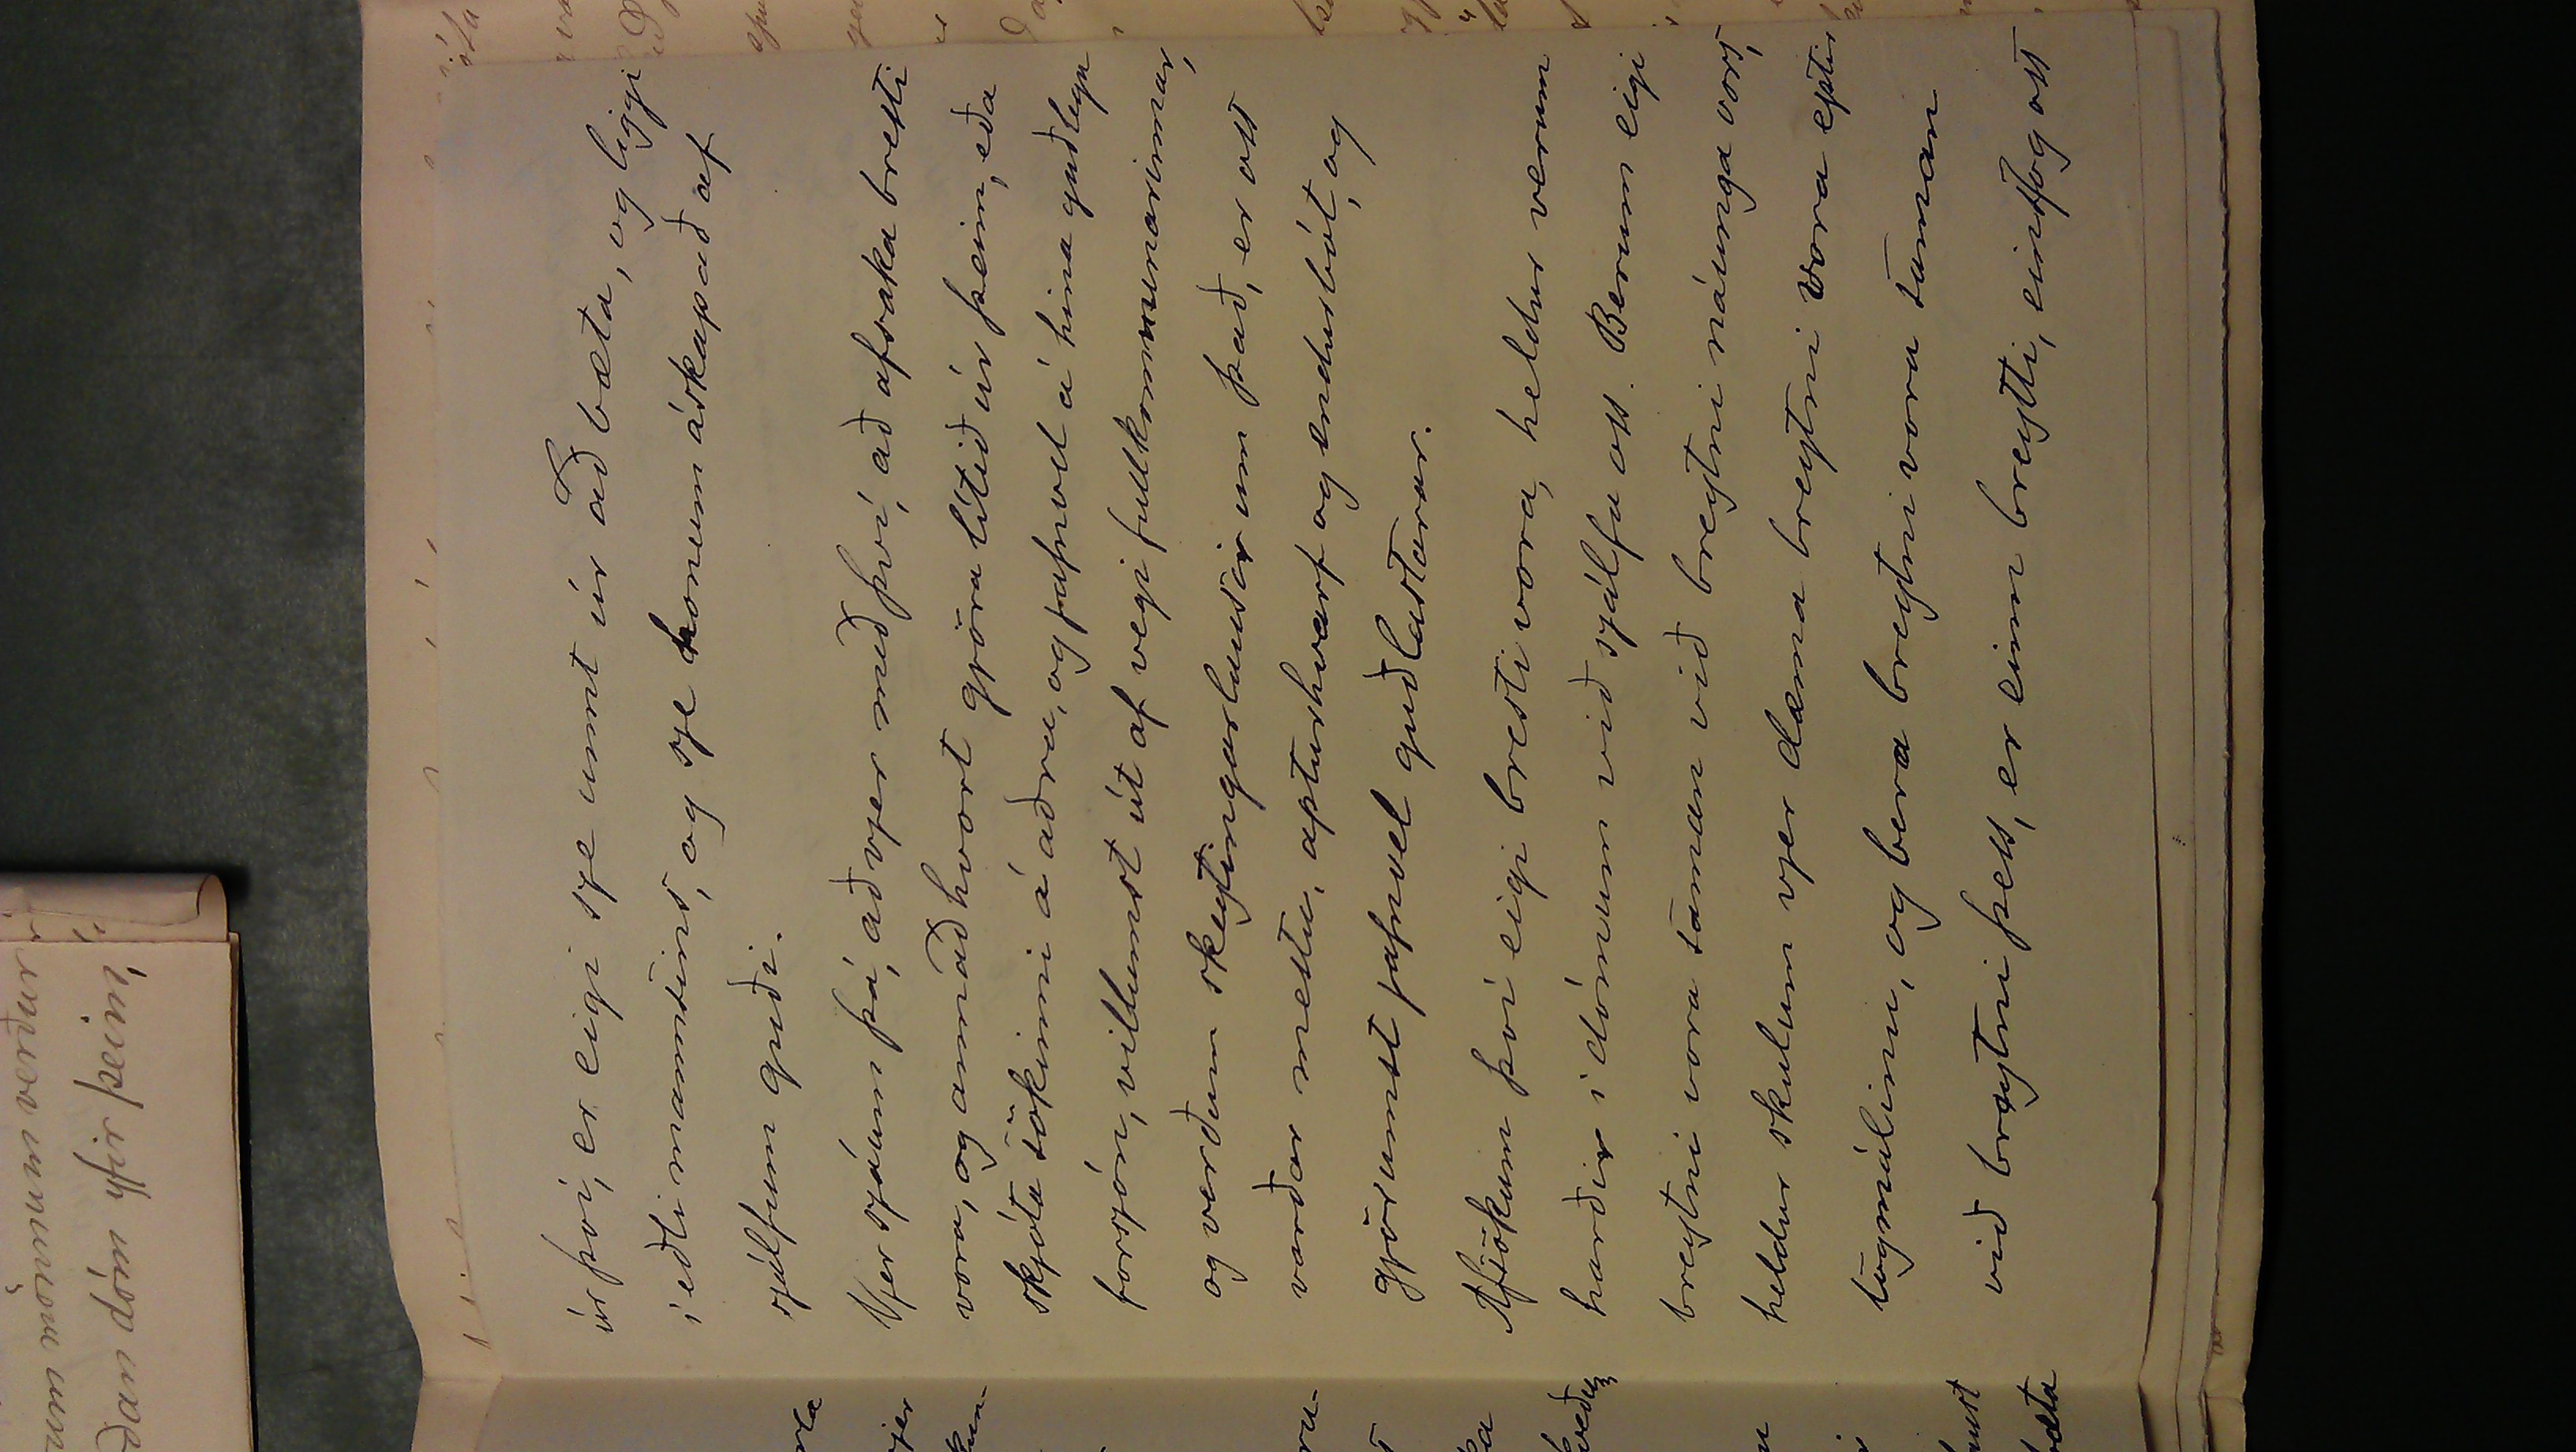 úr því, er eigi sje unnt úr að bæta, og liggi
í eðli mannsins, og sje honum áskapað af
sjálfum guði.
Vjer sjáum þá, að vjer með því, að afsaka bresti
vora, og annað hvort gjöra lítið úr þeim, eða
skjóta sökinni á aðra, og jafnvel á hina guðlegu
forsjón, villumst út af vegi fullkommnunarinnar,
og verðum skeytingarlausir um það, er oss
varðar mestu, apturhvarf og endurbót, og
gjörumst jafnvel guðlastarar.
Afsökum því eigi bresti vora, heldur verum
harðir í dómum við sjálfa oss. Berum eigi
breytni vora saman við breytni náunga vors,
heldur skulum vjer dæma breytni vora eptir
lögmálinu, og bera breytni vora saman
við breytni þess, er einn breytti, eins og oss
ðan dóm yfir þeim,
rla
vjer
kun-
ru-
ka
kveðum
umst
bæta